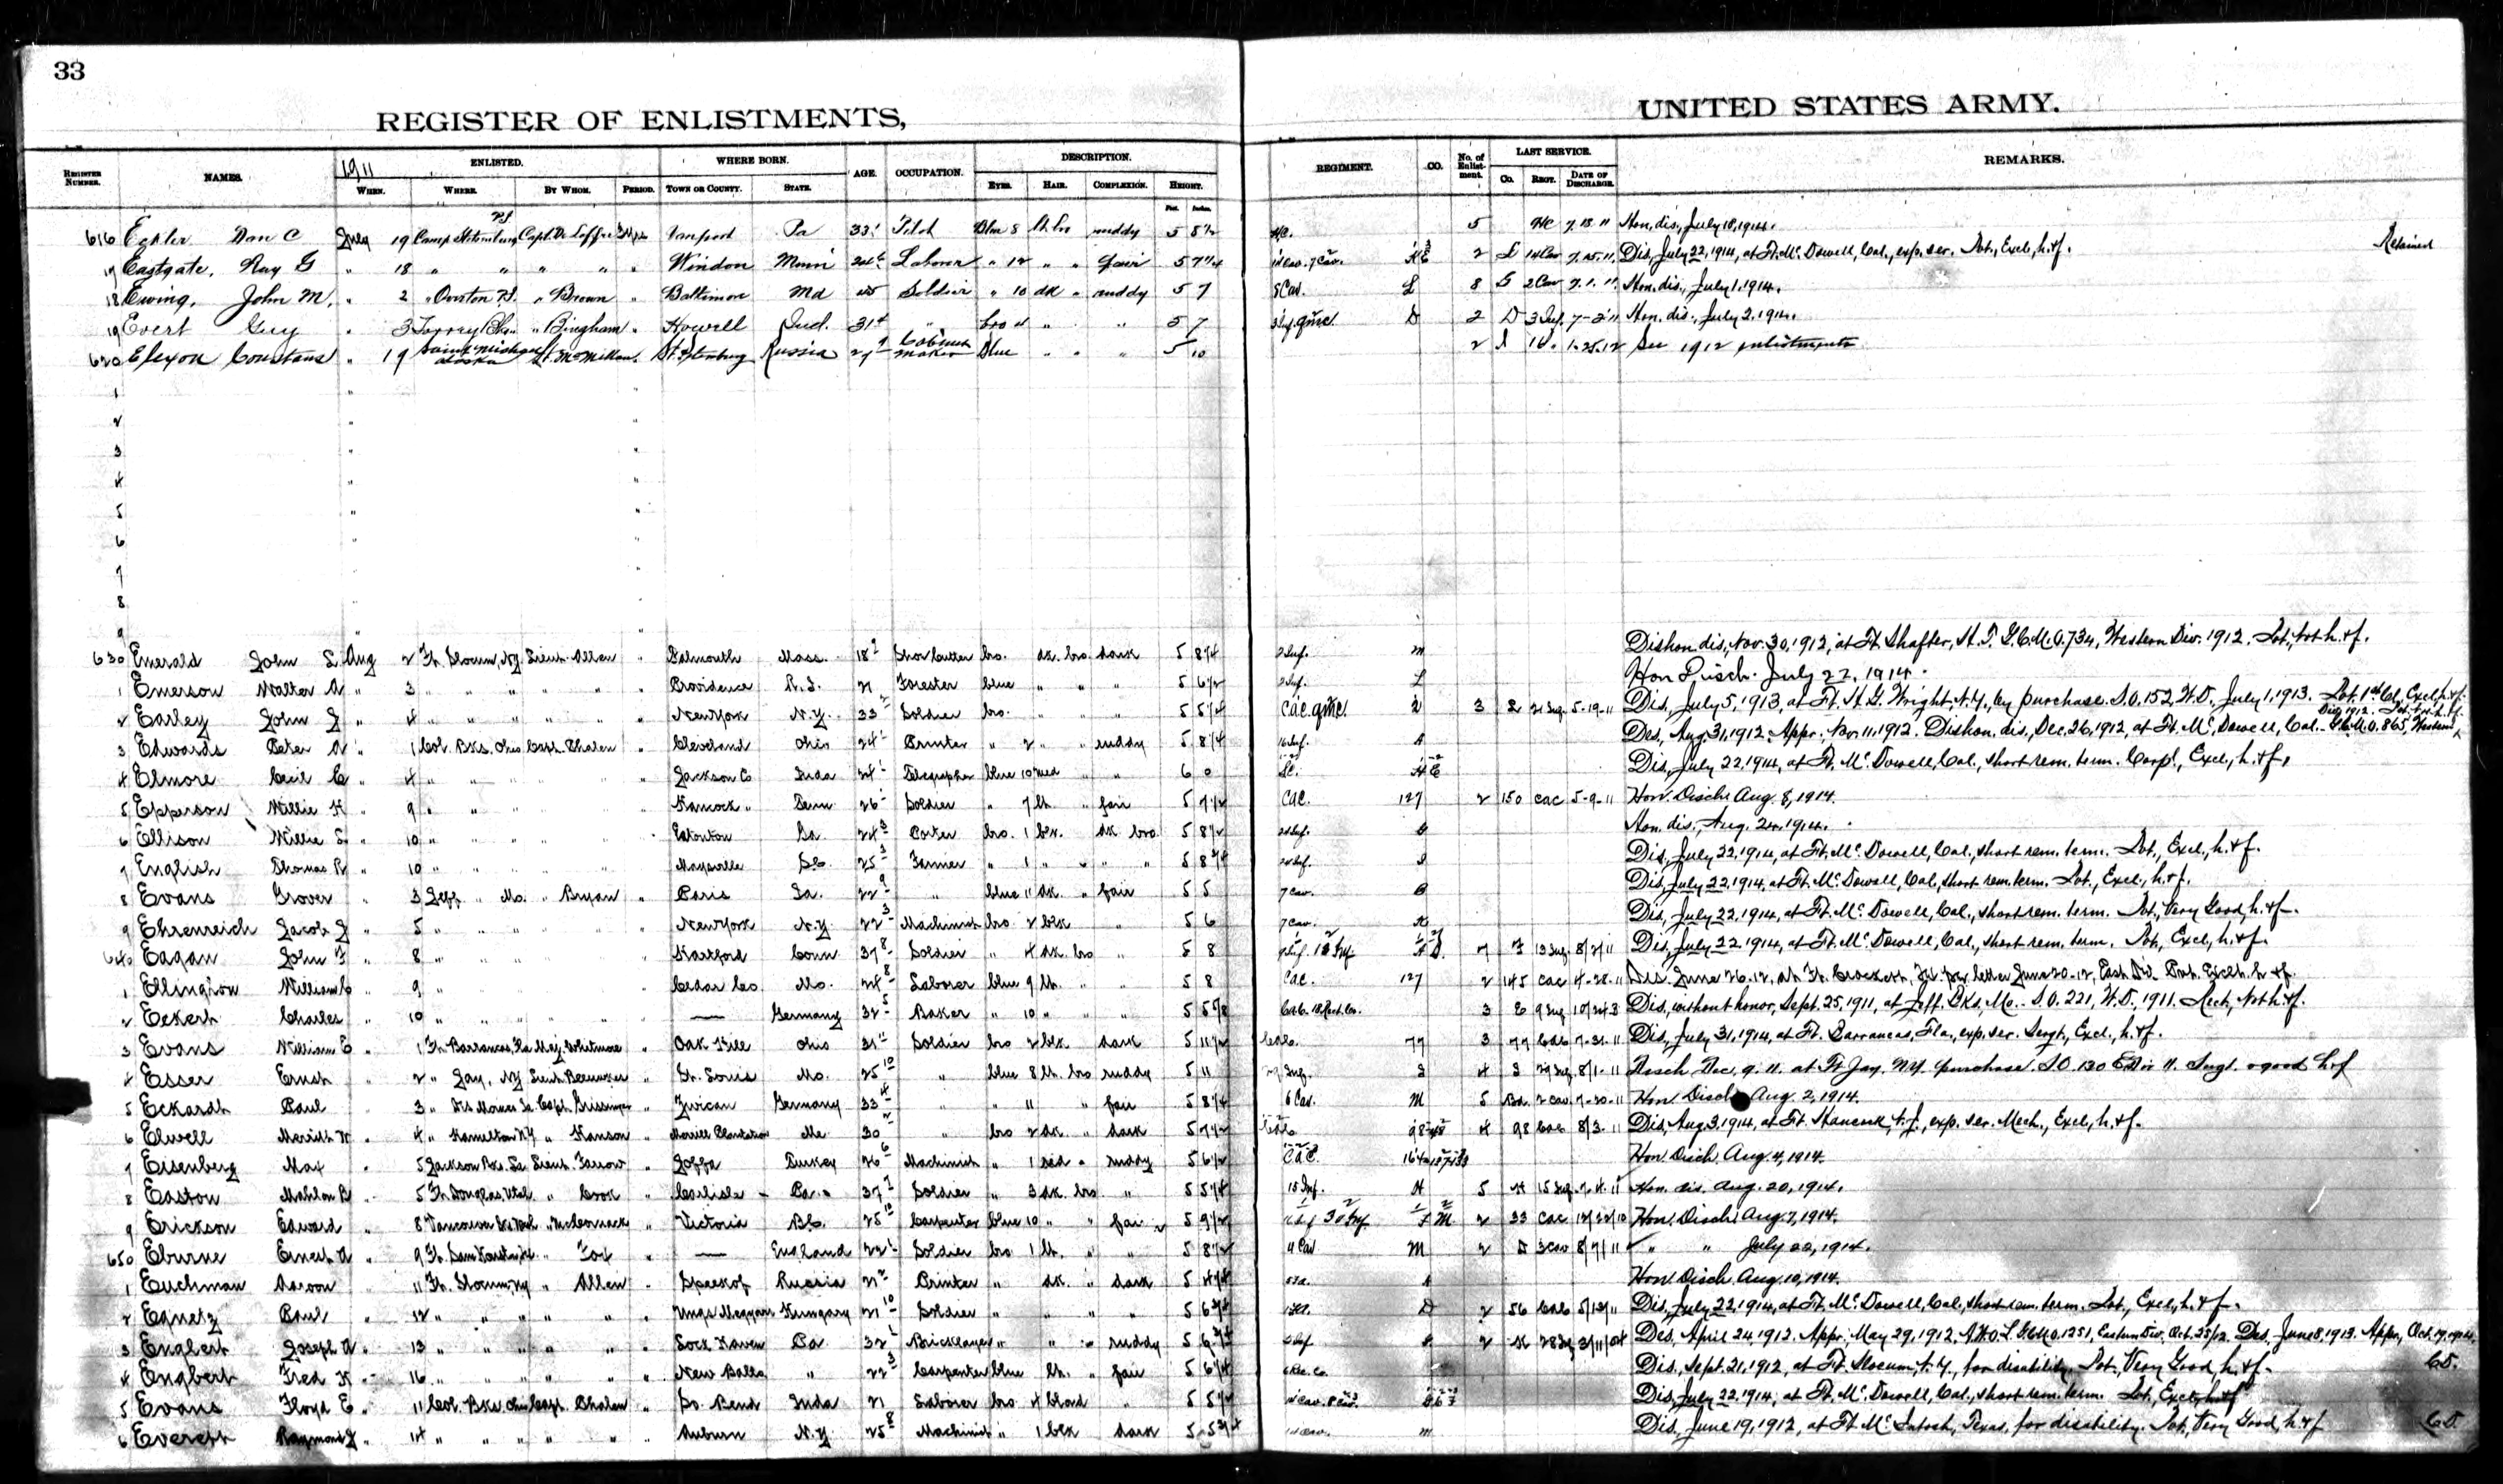 33
REGISTER OF ENLISTMENTS, UNITED STATES ARMY.
REGISTER NUMBER. NAMES. 1911 ENLISTED. WHEN. WHERE. BY WHOM. PERIOD. WHERE BORN. TOWN OR COUNTY. STATE. AGE. OCCUPATION. DESCRIPTION. EYES. HAIR. COMPLEXION. HEIGHT. Feet. Inches. REGIMENT. CO. No. of Enlistment. LAST SERVICE. Co. REGT. DATE OF DISCHARGE. REMARKS.
616 Dan C July 19 Pa ruddy 5 8½ 5 HC 7.18.11 Hon. dis., July 18, 1914.
17 Eastgate, Ray G " 18 " " " " " Windon Minn Laborer " 12 " " fair 5 7¼ 2 Dis., July 22, 1914, at Ft. McDowell, Cal., exp. ser. Pvt., Excel., h. & f. Retained
18 Ewing, John M. " 2 " " Brown " Baltimore Md Soldier " 10 dk " ruddy 5 7 5 Cav. L 8 G 2 Cav 7.1.11 Hon. dis., July 1, 1914.
19 Evert Guy " 3 " Bingham " Howell Ind. 31 " bro 4 " " 5 7 D 2 D 3 Inf. 7-2-11 Hon. dis., July 2, 1914.
620 Elexon Constans " 19 Saint Michael Alaska Lt. McMillan " St. Petersburg Russia 29 Cabinet maker Blue " " " 5 10 2 I 16 " 1.25.12 See 1912 enlistments
1 "
2 "
3 "
4 "
5 "
6 "
7
8
9 "
630 Emerald John S. Aug 2 Ft. Slocum, NY Lieut. Allen " Falmouth Mass. 18 Shoe cutter bro. dk. bro dark 5 8¼ 2 Inf. M Dishon. dis., Nov. 30, 1912, at Ft. Shafter, H. T. G.C.M.O. 734, Western Div. 1912. Pvt., Not h. & f.
1 Emerson Walter A " 3 " " " " " Providence R. I. 21 Forester blue " " " 5 6½ 2 Inf. L Hon Disch. July 22, 1914.
2 Earley John J " 4 " " " " " New York N.Y. 33 Soldier bro. " " " 5 5¼ CAC. QMC. 3 5-19-11 Dis., July 5, 1913, at Ft. H. G. Wright, N.Y., by purchase. S.O. 152, W.D., July 1, 1913. Pvt. 1st Cl., Excel., h. & f.
3 Edwards Peter A " 1 Col. Bks. Ohio Capt. Phalen " Cleveland Ohio 24 Printer " 2 " " ruddy 5 8¼ 16 Inf. A Des., Aug. 31, 1912. Appr., Nov. 11, 1912. Dishon. dis., Dec. 26, 1912, at Ft. McDowell, Cal. - G.C.M.O. 865, Western Div., 1912. Pvt. Not h. & f.
4 Elmore Cecil C " 4 " " " " Jackson Co Inda 24 Telegrapher blue 10 red " " 6 0 Dis., July 22, 1914, at Ft. McDowell, Cal., short rem. term. Corpl., Excel., h. & f.
5 Epperson Willie H " 9 " " " " " Hancock " Tenn 26 Soldier " 7 lt. " fair 5 7½ CAC. 127 2 150 CAC 5-9-11 Hon. Disch. Aug. 8, 1914.
6 Ellison Willie S. " 10 " " " " " Eatonton Ga. 24 Porter bro. 1 blk. dk bro 5 8½ 24 Inf. G Hon. dis., Aug. 20, 1914.
7 English Thomas R " 10 " " " " Maysville So. 25 Farmer " 1 " " " 5 8¾ 24 Inf. I Dis., July 22, 1914, at Ft. McDowell, Cal., short rem. term. Pvt., Excel., h. & f.
8 Evans Grover " 3 Jeff " Mo. " Bryan " Paris Ia. 22 " blue 11 dk. " fair 5 5 7 Cav. B Dis., July 22, 1914, at Ft. McDowell, Cal., short rem. term. Pvt., Excel., h. & f.
9 Ehrenreich Jacob J " 5 " " " " New York N.Y 22 Machinist bro 2 blk " 5 6 7 Cav. K Dis., July 22, 1914, at Ft. McDowell, Cal., short rem. term. Pvt., Very Good, h. & f.
640 Eagan John F " 8 " " " " Hartford Conn 37 Soldier " 4 dk. bro " 5 8 7 F 13 Inf. 8/2/11 Dis., July 22, 1914, at Ft. McDowell, Cal., short rem. term. Pvt., Excel., h. & f.
1 Ellington William C " 9 " " Cedar Co. Mo. 24 Laborer blue 9 lt. " " 5 8 CAC. 127 2 145 CAC 4-28-11 Dis. June 26-12, at Ft. Crockett, Tex. per letter June 20-12, East Div. Pvt. Excel. h. & f.
2 Eckert Charles " 10 " " " " " — Germany 32 Baker " 10 " " " 5 5⅝ 3 E 9 Inf. Dis., without honor, Sept. 25, 1911, at Jeff. Bks., Mo. - S.O. 221, W.D., 1911. Rect., Not h. & f.
3 Evans William E " 1 Ft. Barrancas, Fla Maj. Whitmore " Oak Hill Ohio 31 Soldier bro 2 blk dark 5 11½ CAC. 77 3 77 CAC 7-31-11 Dis., July 31, 1914, at Ft. Barrancas, Fla., exp. ser. Sergt., Excel., h. & f.
4 Esser Ernst " 2 " Jay, NY Lieut. " St. Louis Mo. 25 " blue 8 lt. bro ruddy 5 11 29 Inf. 4 29 Inf. 8/1-11 Disch Dec. 9. 11. at Ft Jay, N.Y. purchase S.O. 130 E Div 11. Sergt. v good h f
5 Eckardt Paul " 3 " Des Moines Ia Capt. Grissinger " Zwican Germany 33 " " 11 " fair 5 8¼ 6 Cav. M 5 Bd. 2 Cav. 7-20-11 Hon. Disch. Aug. 2, 1914.
6 Elwell Merith H " 4 " Hamilton NY " Hanson " Morrill Plantation Me 30 " bro 2 dk. " dark 5 7½ CAC 98 4 98 CAC 8/3-11 Dis., Aug. 3, 1914, at Ft. Hancock, N. J., exp. ser. Mech., Excel., h. & f.
7 Eisenberg Max " 5 Jackson Bks. La Lieut. Farrow " Joffa Turkey 26 Machinist " 1 red " ruddy 5 6½ CAC. Hon. Disch. Aug. 4, 1914.
8 Easton Mahlon B " 5 Ft. Douglas, Utah " Cook " Carlisle Pa. 37 Soldier " 3 dk. bro " 5 5¼ 15 Inf. H 5 H 15 Inf. Hon. dis. Aug. 20, 1914.
9 Erickson Edward " 8 Vancouver Bks Wash " McCormack " Victoria B.C. 25 Carpenter blue 10 " " fair 5 9½ 2 33 CAC 12/22/10 Hon. Disch. Aug. 7, 1914.
650 Eburne Ernest A " 9 Ft. Sam Houston, Tex. " Fox " — England 22 Soldier bro 1 lt. " " 5 8½ 4 Cav M 2 D 3 Cav 8/7/11 " " July 22, 1914.
1 Euchman Aaron " 11 Ft. Slocum, NY " Allen " Russia 21 Printer " dk. " dark 5 4¼ Hon. Disch. Aug. 10, 1914.
2 Egnetz Paul " 12 " " " " " Hungary 21 Soldier " " " " 5 6¾ D 2 56 CAC Dis., July 22, 1914, at Ft. McDowell, Cal., short rem. term. Pvt., Excel., h. & f.
3 Englert Joseph A " 13 " " " " " Lock Haven Pa. 32 Bricklayer " " " ruddy 5 6¾ 2 28 Inf. 3/11/04 Des. April 24, 1912. Appr. May 29, 1912. A.W.O.L. G.C.M.O. 1251, Eastern Div. Oct. 25/12. Des. June 8, 1913. Appr., Oct. 19, 1914.
4 Engbert Fred H " 16 " " " " " New Balls " 22 Carpenter blue lt. " fair 5 6¼ 6 Rec. Co. Dis. Sept. 21, 1912, at Ft. Slocum, N.Y., for disability. Pvt., Very Good, h. & f. C.D.
5 Evans Floyd E. " 11 Col. Bks. Ohio Capt. Phalen " So. Bend Inda 21 Laborer bro. 4 blond " 5 5½ Dis., July 22, 1914, at Ft. McDowell, Cal., short rem. term. Pvt., Excel., h. & f.
6 Everett Raymond J " 14 " " " " " Auburn N.Y. 25 Machinist " 1 blk dark 5 5¾ M Dis., June 19, 1912, at Ft. McIntosh, Texas, for disability. Pvt., Very Good, h. & f. C.D.